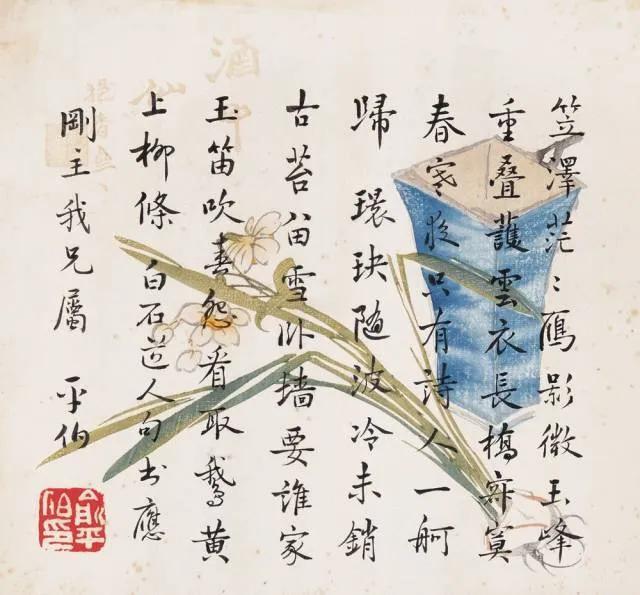 笠澤茫〻鴈影微玉峰
重叠護雲衣長橋寂寞
春寒夜只有詩人一舸
歸 環玦隨波冷未銷
古苔留雪卧墙要誰家
玉笛吹春怨看取鵞黄
上柳條 白石道人句书應
剛主我兄屬 平伯
俞平伯印
酒中
仙